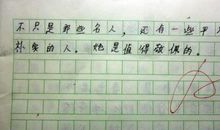 不只是那些名人，还有一些平凡
朴实的人。她是值得敬佩的。